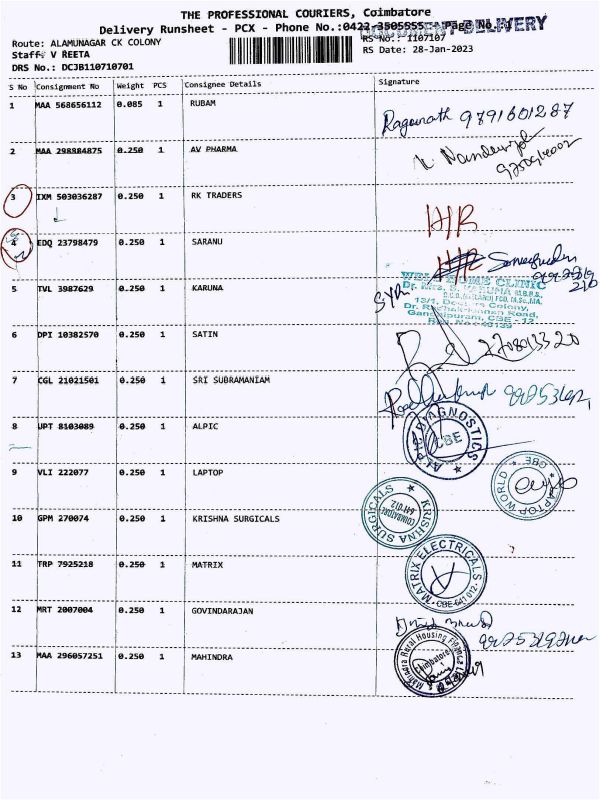 THE PROFESSIONAL COURIERS, Coimbatore
Delivery Runsheet - PCX - Phone No.:0422-3505555 Page No.:1
DOCUMENT DELIVERY
Route: ALAMUNAGAR CK COLONY
RS No.: 1107107
Staff: V REETA
RS Date: 28-Jan-2023
DRS No.: DCJB110710701
S No Consignment No Weight PCS Consignee Details Signature
1 MAA 568656112 0.085 1 RUBAM Ragunath 9791601287
2 MAA 298884875 0.250 1 AV PHARMA
3 IXM 503036287 0.250 1 RK TRADERS H/R
4 EDQ 23798479 0.250 1 SARANU H/R
WELL HOME CLINIC
5 TVL 3987629 0.250 1 KARUNA
Dr. Mrs. S. KARUNA M.B.B.S.,
13/1, Doctors Colony,
Ganapathipuram, CBE - 12
6 DPI 10382570 0.250 1 SATIN
7 CGL 21021501 0.250 1 SRI SUBRAMANIAM
8 UPT 8103089 0.250 1 ALPIC
DIAGNOSTICS
CBE
9 VLI 222077 0.250 1 LAPTOP
LAPTOP WORLD CBE
10 GPM 270074 0.250 1 KRISHNA SURGICALS
KRISHNA SURGICALS
COIMBATORE
641 012
11 TRP 7925218 0.250 1 MATRIX
MATRIX ELECTRICALS
CBE-641 012
12 MRT 2007004 0.250 1 GOVINDARAJAN
13 MAA 296057251 0.250 1 MAHINDRA
Mahindra Rural Housing Finance
Coimbatore